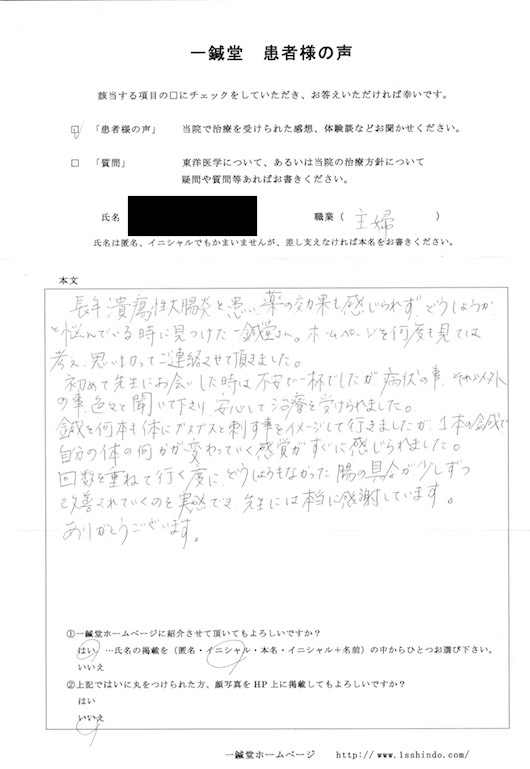 一鍼堂 患者様の声
該当する項目の□にチェックをしていただき、お答えいただければ幸いです。
☑ 「患者様の声」 当院で治療を受けられた感想、体験談などお聞かせください。
□ 「質問」 東洋医学について、あるいは当院の治療方針について
疑問や質問等あればお書きください。
氏名 職業（ 主婦 ）
氏名は匿名、イニシャルでもかまいませんが、差し支えなければ本名をお書きください。
本文
長年潰瘍性大腸炎を患い、薬の効果も感じられず、どうしようか
と悩んでいる時に見つけた一鍼堂さん。ホームページを何度も見ては
考え、思い切ってご連絡させて頂きました。
初めて先生にお会いした時は不安で一杯でしたが病状の事、それ以外
の事、色々と聞いて下さり、安心して治療を受けられました。
鍼を何本も体にブスブスと刺す事をイメージして行きましたが、1本の鍼で
自分の体の何かが変わっていく感覚がすぐに感じられました。
回数を重ねて行く度に、どうしようもなかった腸の具合が少しずつ
改善されていくのを実感でき、先生には本当に感謝しています。
ありがとうございます。
①一鍼堂ホームページに紹介させて頂いてもよろしいですか？
はい …氏名の掲載を（匿名・イニシャル・本名・イニシャル＋名前）の中からひとつお選び下さい。
いいえ
②上記ではいに丸をつけられた方、顔写真をHP上に掲載してもよろしいですか？
はい
いいえ
一鍼堂ホームページ http://www.1sshindo.com/